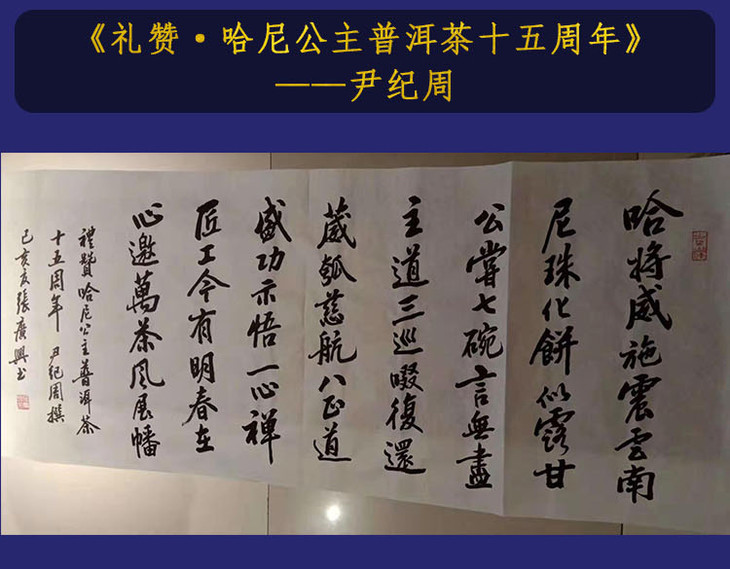 《礼赞·哈尼公主普洱茶十五周年》
——尹纪周
哈将威施震云南
尼珠化餅似露甘
公嘗七碗言無盡
主道三巡啜復還
葳瓠慈航八正道
盛功示悟一心禅
匠工今有明春在
心邀萬茶风展幡
禮贊哈尼公主普洱茶
十五周年 尹纪周撰
己亥友張廣興书